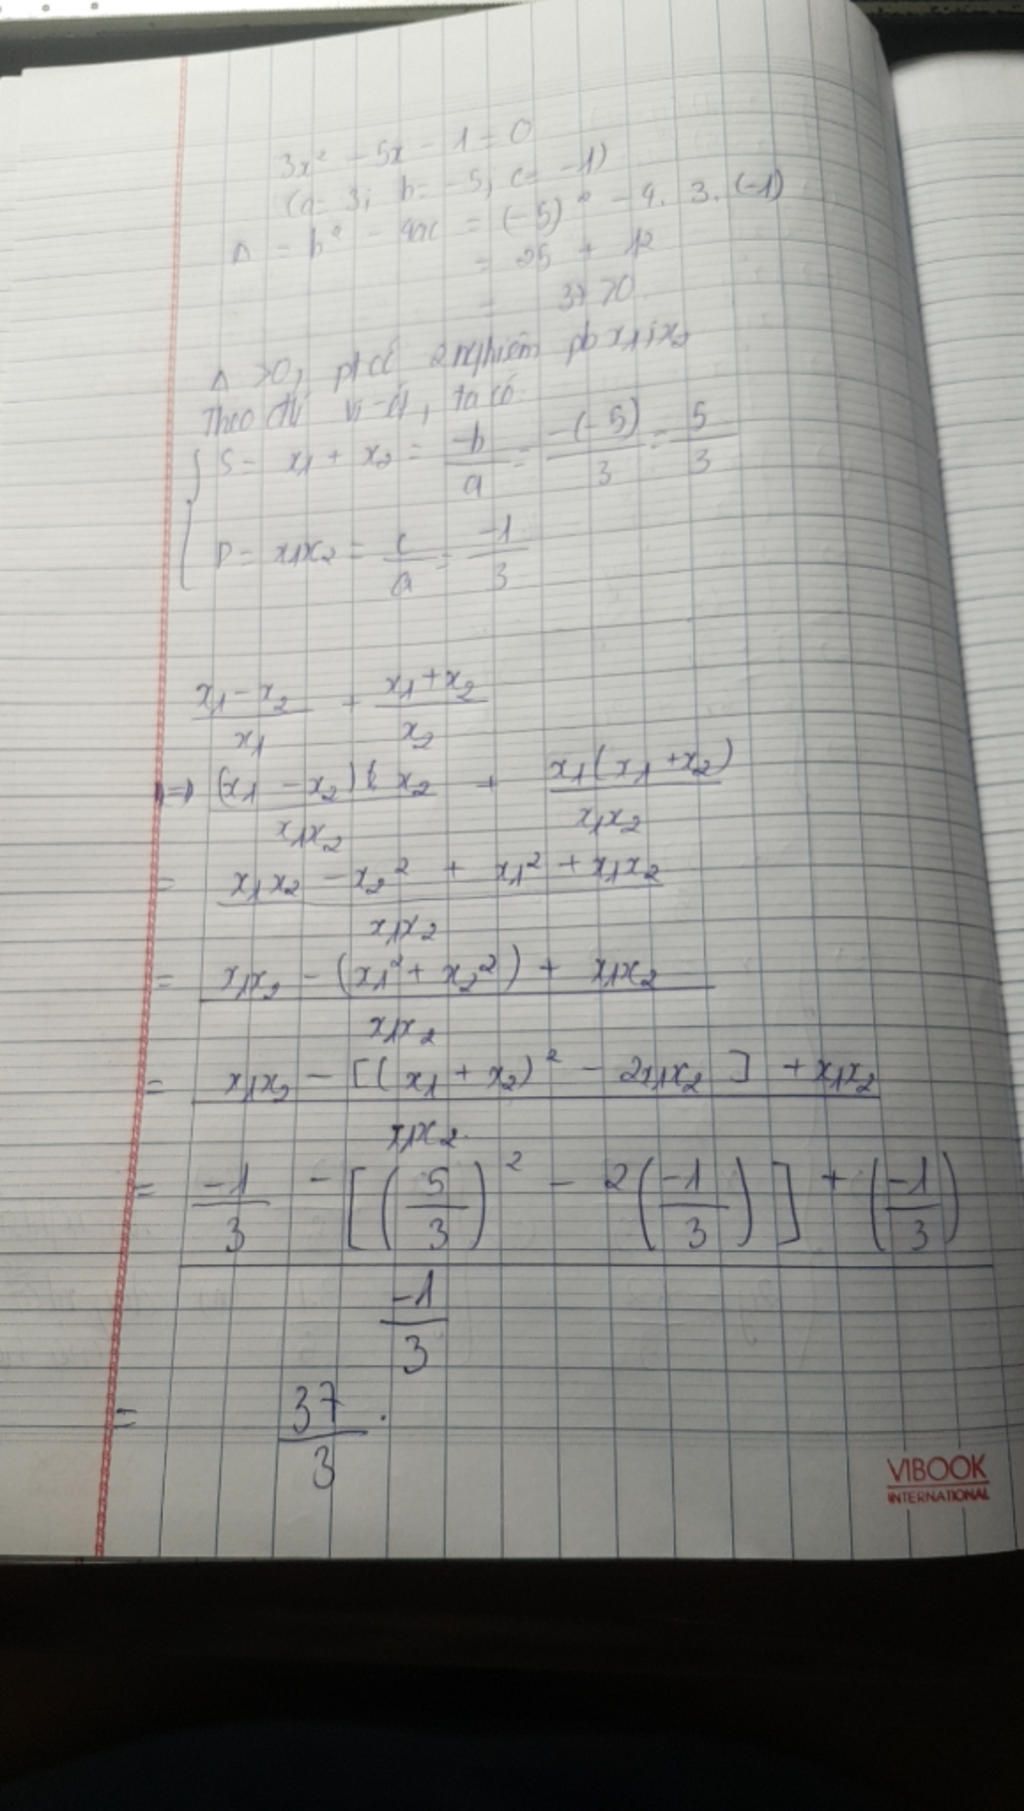 3x² - 5x - 1 = 0
(a = 3; b = -5; c = -1)
Δ = b² - 4ac = (-5)² - 4. 3. (-1)
= 25 + 12
= 37 > 0
Δ > 0, pt có 2 nghiệm pb x₁; x₂
Theo đl vi-ét, ta có:
{ S = x₁ + x₂ = -b/a = -(-5)/3 = 5/3
P = x₁x₂ = c/a = -1/3
(x₁ - x₂)/x₁ + (x₁ + x₂)/x₂
=> (x₁ - x₂) x₂/x₁x₂ + x₁(x₁ + x₂)/x₁x₂
= (x₁x₂ - x₂² + x₁² + x₁x₂)/x₁x₂
= (x₁x₂ - (x₁² + x₂²) + x₁x₂)/x₁x₂
= (x₁x₂ - [(x₁ + x₂)² - 2x₁x₂] + x₁x₂)/x₁x₂
= (-1/3 - [(5/3)² - 2(-1/3)] + (-1/3))/(-1/3)
= 37/3.
VIBOOK
INTERNATIONAL